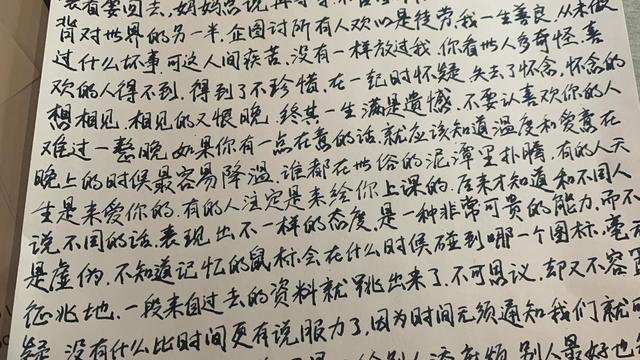 要回去,妈妈总说再
背对世界的另一半,企图讨所有人欢心是徒劳,我一生善良,从未做
过什么坏事,可这人间疾苦,没有一样放过我.你看世人多奇怪,喜
欢的人得不到,得到了不珍惜,在一起时怀疑,失去了怀念,怀念的
想相见,相见的又恨晚,终其一生满是遗憾,不要让喜欢你的人
难过一整晚,如果你有一点在意的话,就应该知道温度和爱意在
晚上的时候最容易降温.谁都在世俗的泥潭里扑腾,有的人天
生是来爱你的,有的人注定是来给你上课的.后来才知道和不同人
说不同的话,表现出不一样的态度,是一种非常可贵的能力,而不
是虚伪,不知道记忆的鼠标,会在什么时候碰到哪一个图标,毫无
征兆地,一段来自过去的资料就跳出来了,不可思议,却又不容
疑,没有什么比时间更有说服力了,因为时间无须通知我们就
给别人添麻烦,别人最好也